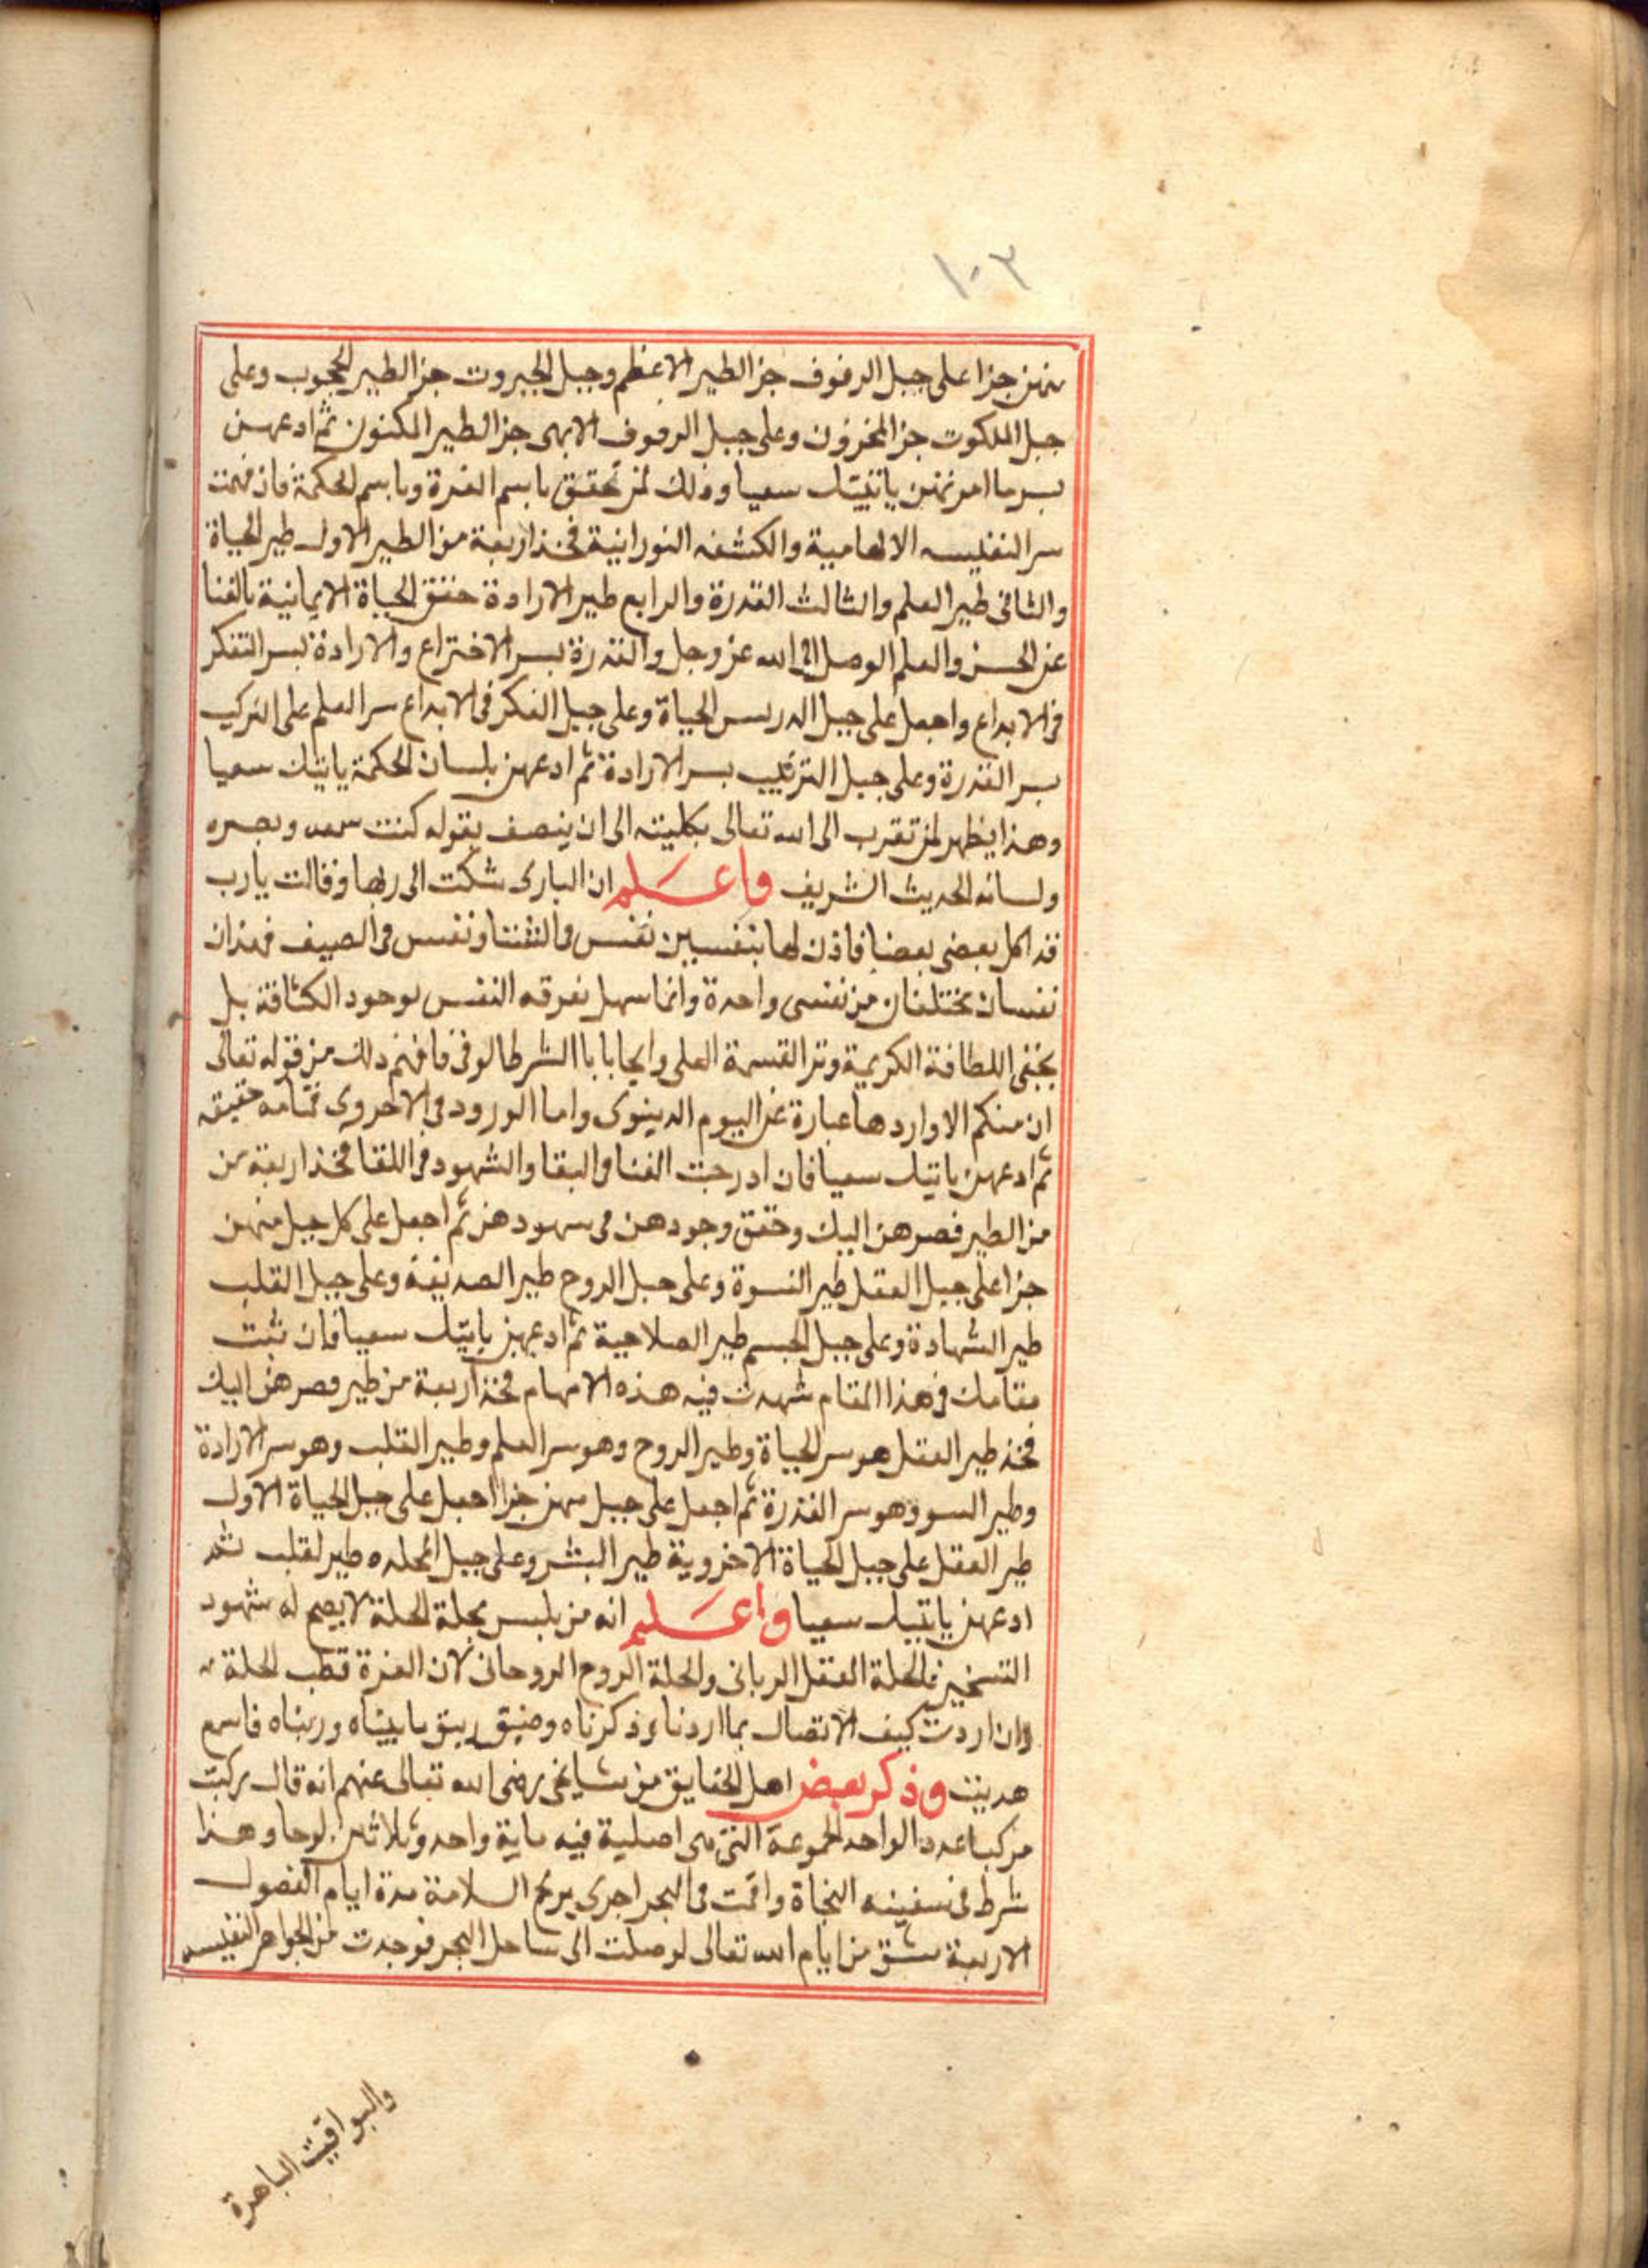 ١٠٣
منهن جزا على جبل الرفوف جز الطير الاعظم وجبل الجبروت جز الطير المحجوب وعلى
جبل الملكوت جز المخزون وعلى جبل الرفوف الابهى جز الطير المكنون ثم ادعهن
بسر ما امرتهن ياتينك سعيا وذلك لمن تحقق باسم العزة وباسم الحكمة فان فهمت
سر النفليسه الالهامية والكشفه النورانية فخذ اربعة من الطير الاول طير الحياة
والثانى طير العلم والثالث القدرة والرابع طير الارادة حقق الحياة الايمانية بالفنا
عن الحسن والعلم الوصل الى الله عز وجل والقدرة بسر الاختراع والارادة بسر التفكر
فى الابداع واجعل على جبل الدر بسر الحياة وعلى جبل الفكر فى الابداع سر العلم على التركيب
بسر القدرة وعلى جبل الترتيب بسر الارادة ثم ادعهن بلسان الحكمة ياتينك سعيا
وهذا يظهر لمن تقرب الى الله تعالى بكليته الى ان يتصف بقوله كنت سمعه وبصره
ولسانه الحديث الشريف واعلم ان البارى شكت الى ربها وقالت يارب
قد اكل بعضى بعضا فاذن لها بنفسين نفس فى الشتا ونفس فى الصيف فهذان
نفسان مختلفان من نفسى واحدة وانما سهل نفرقه النفس لوجود الكثافة بل
بخفى اللطافة الكريمة القسمة العلى الشرط فافهم ذلك من قوله تعالى
ان منكم الا واردها عبارة عن اليوم الدينوى واما الورود فى الاخروى حقيقه
ثم ادعهن ياتينك سعيا فان ادرجت الفنا فى البقا والشهود فى اللقا فخذ اربعة من
من الطير فصرهن اليك وحقق وجودهن فى سهودهن ثم اجعل على كل جبل منهن
جزا على جبل العقل طير النبوة وعلى جبل الروح طير الصديقة وعلى جبل القلب
طير الشهادة وعلى جبل الجسم طير الصلاحية ثم ادعهن ياتينك سعيا فان ثبت
مقامك فى هذا المقام شهدت فيه هذه الامهام فخذ اربعة من طير فصرهن اليك
فخذ طير العقل هو سر الحياة وطير الروح وهو سر العلم وطير القلب وهو سر الارادة
وطير السو وهو سر القدرة ثم اجعل على جبل منهن جزا اجعل على جبل الحياة الاول
طير العقل على جبل الحياة الاخروية طير البشر وعلى جبل طير لقلب ثم
ادعهن ياتينك سعيا واعلم انه من يلبس بحلة الحلة لا يصح له شهود
التسخير فالحلة العقل الربانى والحلة الروح الروحانى لان العزة قطب الحلة
وان اردت كيف الاتصال بما اردنا وذكرناه ما بيناه ورتبناه فاسمع
هديت وذكر بعض اهل الحقايق من مشايخى رضى الله تعالى عنهم انه قال ركبت
مركبا عدد الواحه المجموعة التى هى اصلية فيه ماية واحد وثلاثين لوحا وهذا
شرط فى سفينه النجاة واقمت فى البحر اجرى بريح السلامة مدة ايام الفصول
الاربعة من ايام الله تعالى لوصلت الى ساحل البحر فوجدت من الجواهر النفيسه
واليواقيت الباهرة